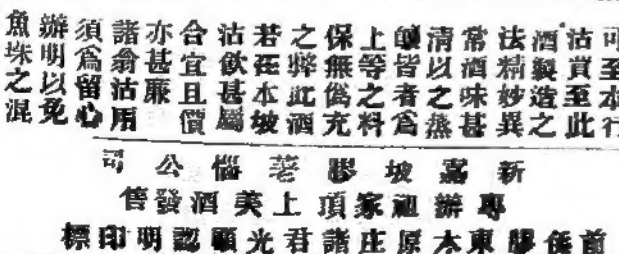 可至本行
沽賣至此
酒製造之
法精妙異
常酒味甚
清以之蒸
皆者爲
上等之料
保無僞充
之弊此酒
若在本坡
沽飲甚屬
合宜且價
亦甚廉
諸翁沽用
須爲留心
辦明以免
魚珠之混
新嘉坡膠荖惱公司
專辦祖家頂上美酒發售
前係膠東木原庄諸君光顧認明印標